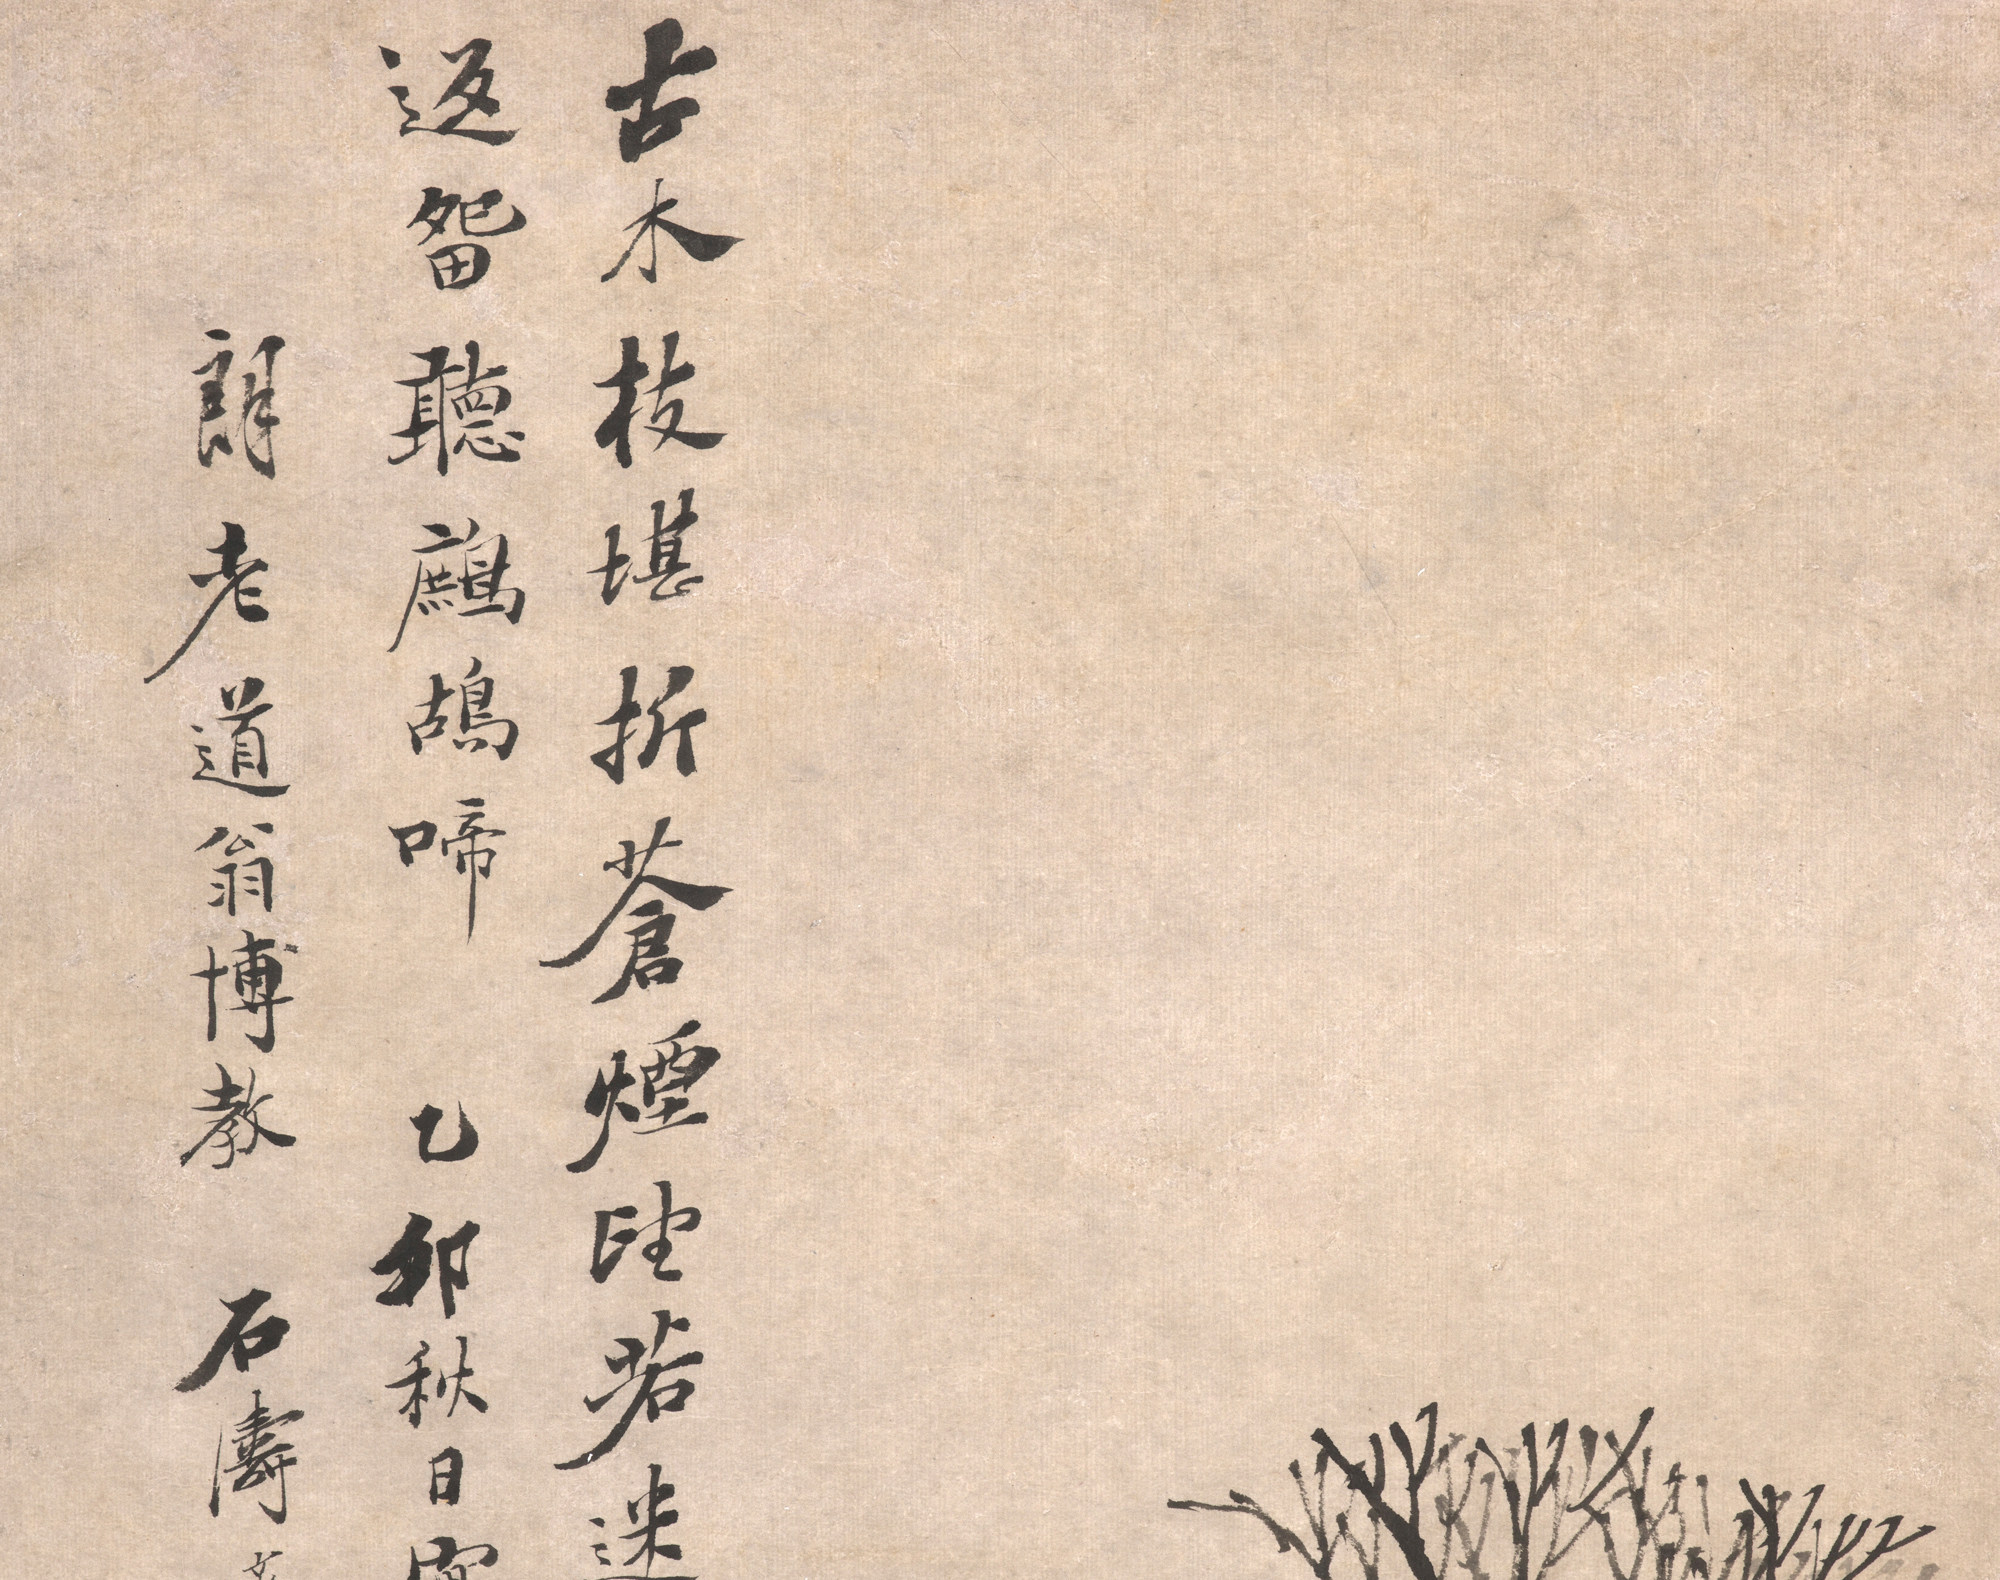 古木枝堪折蒼煙望若迷
返留聽鷓鴣啼 乙卯秋日寫
朗老道翁博教 石濤